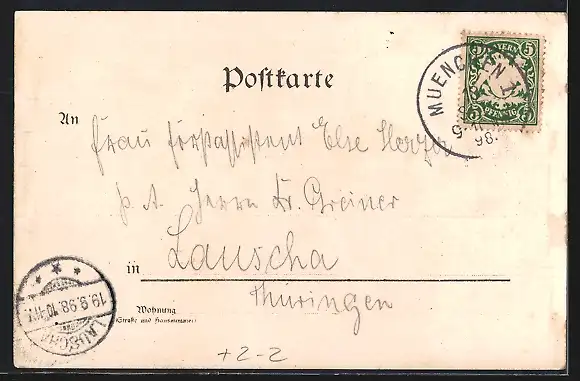 5 BAYERN 5
PFENNIG
MUENCHEN I
98.
Postkarte
An Frau Forstassistent Else
p. A. Herrn Dr. Greiner
in Lauscha
Thüringen
Wohnung
(Straße und Hausnummer)
19.9.98.10-11V.
LAUSCHA
+2-2